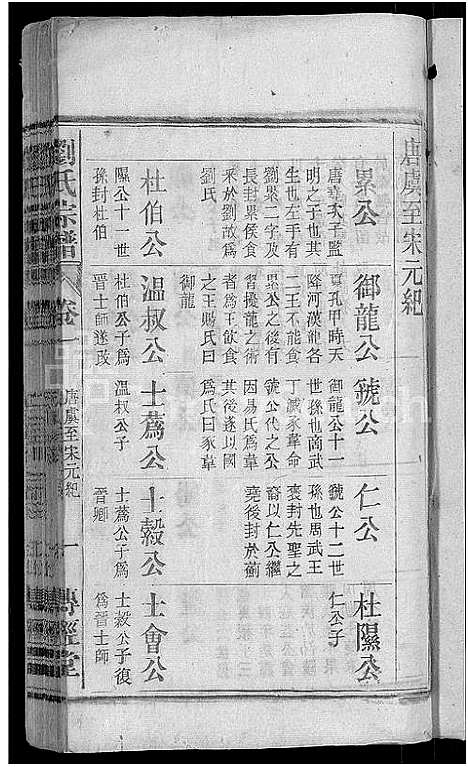 唐虞至宋元紀
累公
唐堯次子監
明之子也其
生也左手有
劉累二字及
長封累侯食
采於劉故爲
劉氏
御龍公
夏孔甲時天
降河漢龍各
二王不能食
累公之後有
習擾龍之術
者爲王飲食
之王賜氏曰
御龍
虢公
御龍公十一
世孫也商武
丁滅豕革命
虢公代之公
因易氏爲韋
其後遂以國
爲氏曰豕韋
仁公
虢公十二世
孫也周武王
褒封先聖之
裔以仁公繼
堯後封於薊
杜隰公
仁公子
杜伯公
隰公十一世
孫封杜伯
温叔公
杜伯公子爲
晉士師遂改
士蔿公
温叔公子
士縠公
士蔿公子爲
晉卿
士會公
士縠公子復
爲晉士師
劉氏宗譜
卷一
唐虞至宋元紀
一
傳經堂